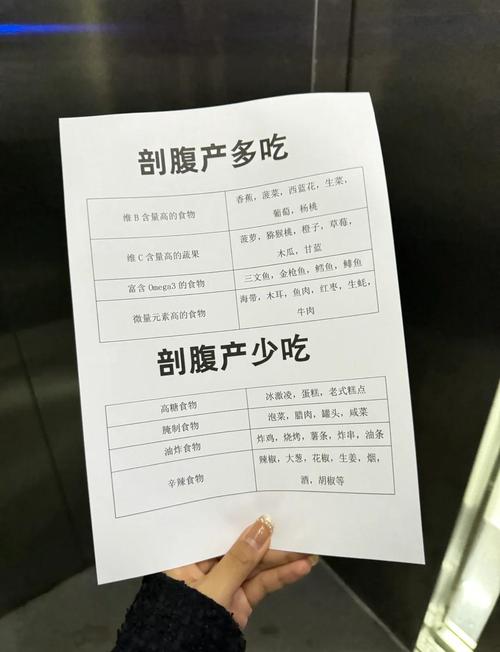 剖腹产多吃
维B含量高的食物
香蕉，菠菜，西蓝花，生菜，
葡萄，杨桃
维C含量高的蔬果
菠萝，猕猴桃，橙子，草莓，
木瓜，甘蓝
富含Omega3的食物
三文鱼，金枪鱼，鳕鱼，鲱鱼
微量元素高的食物
海带，木耳，鱼肉，红枣，生蚝，
牛肉
剖腹产少吃
高糖食物
冰激凌，蛋糕，老式糕点
腌制食物
泡菜，腊肉，罐头，咸菜
油炸食物
炸鸡，烧烤，薯条，炸串，油条
辛辣食物
辣椒，大葱，花椒，生姜，烟，
酒，胡椒等